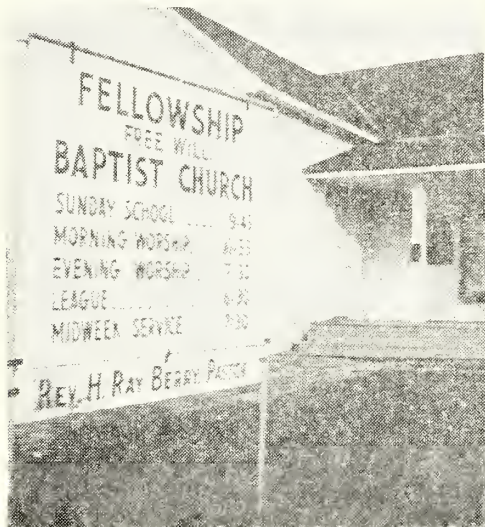 FELLOWSHIP
FREE WILL
BAPTIST CHURCH
SUNDAY SCHOOL .... 9:45
MORNING WORSHIP
EVENING WORSHIP 7:30
LEAGUE ....... 6:30
MIDWEEK SERVICE 7:30
REV. H. RAY BERRY, PASTOR